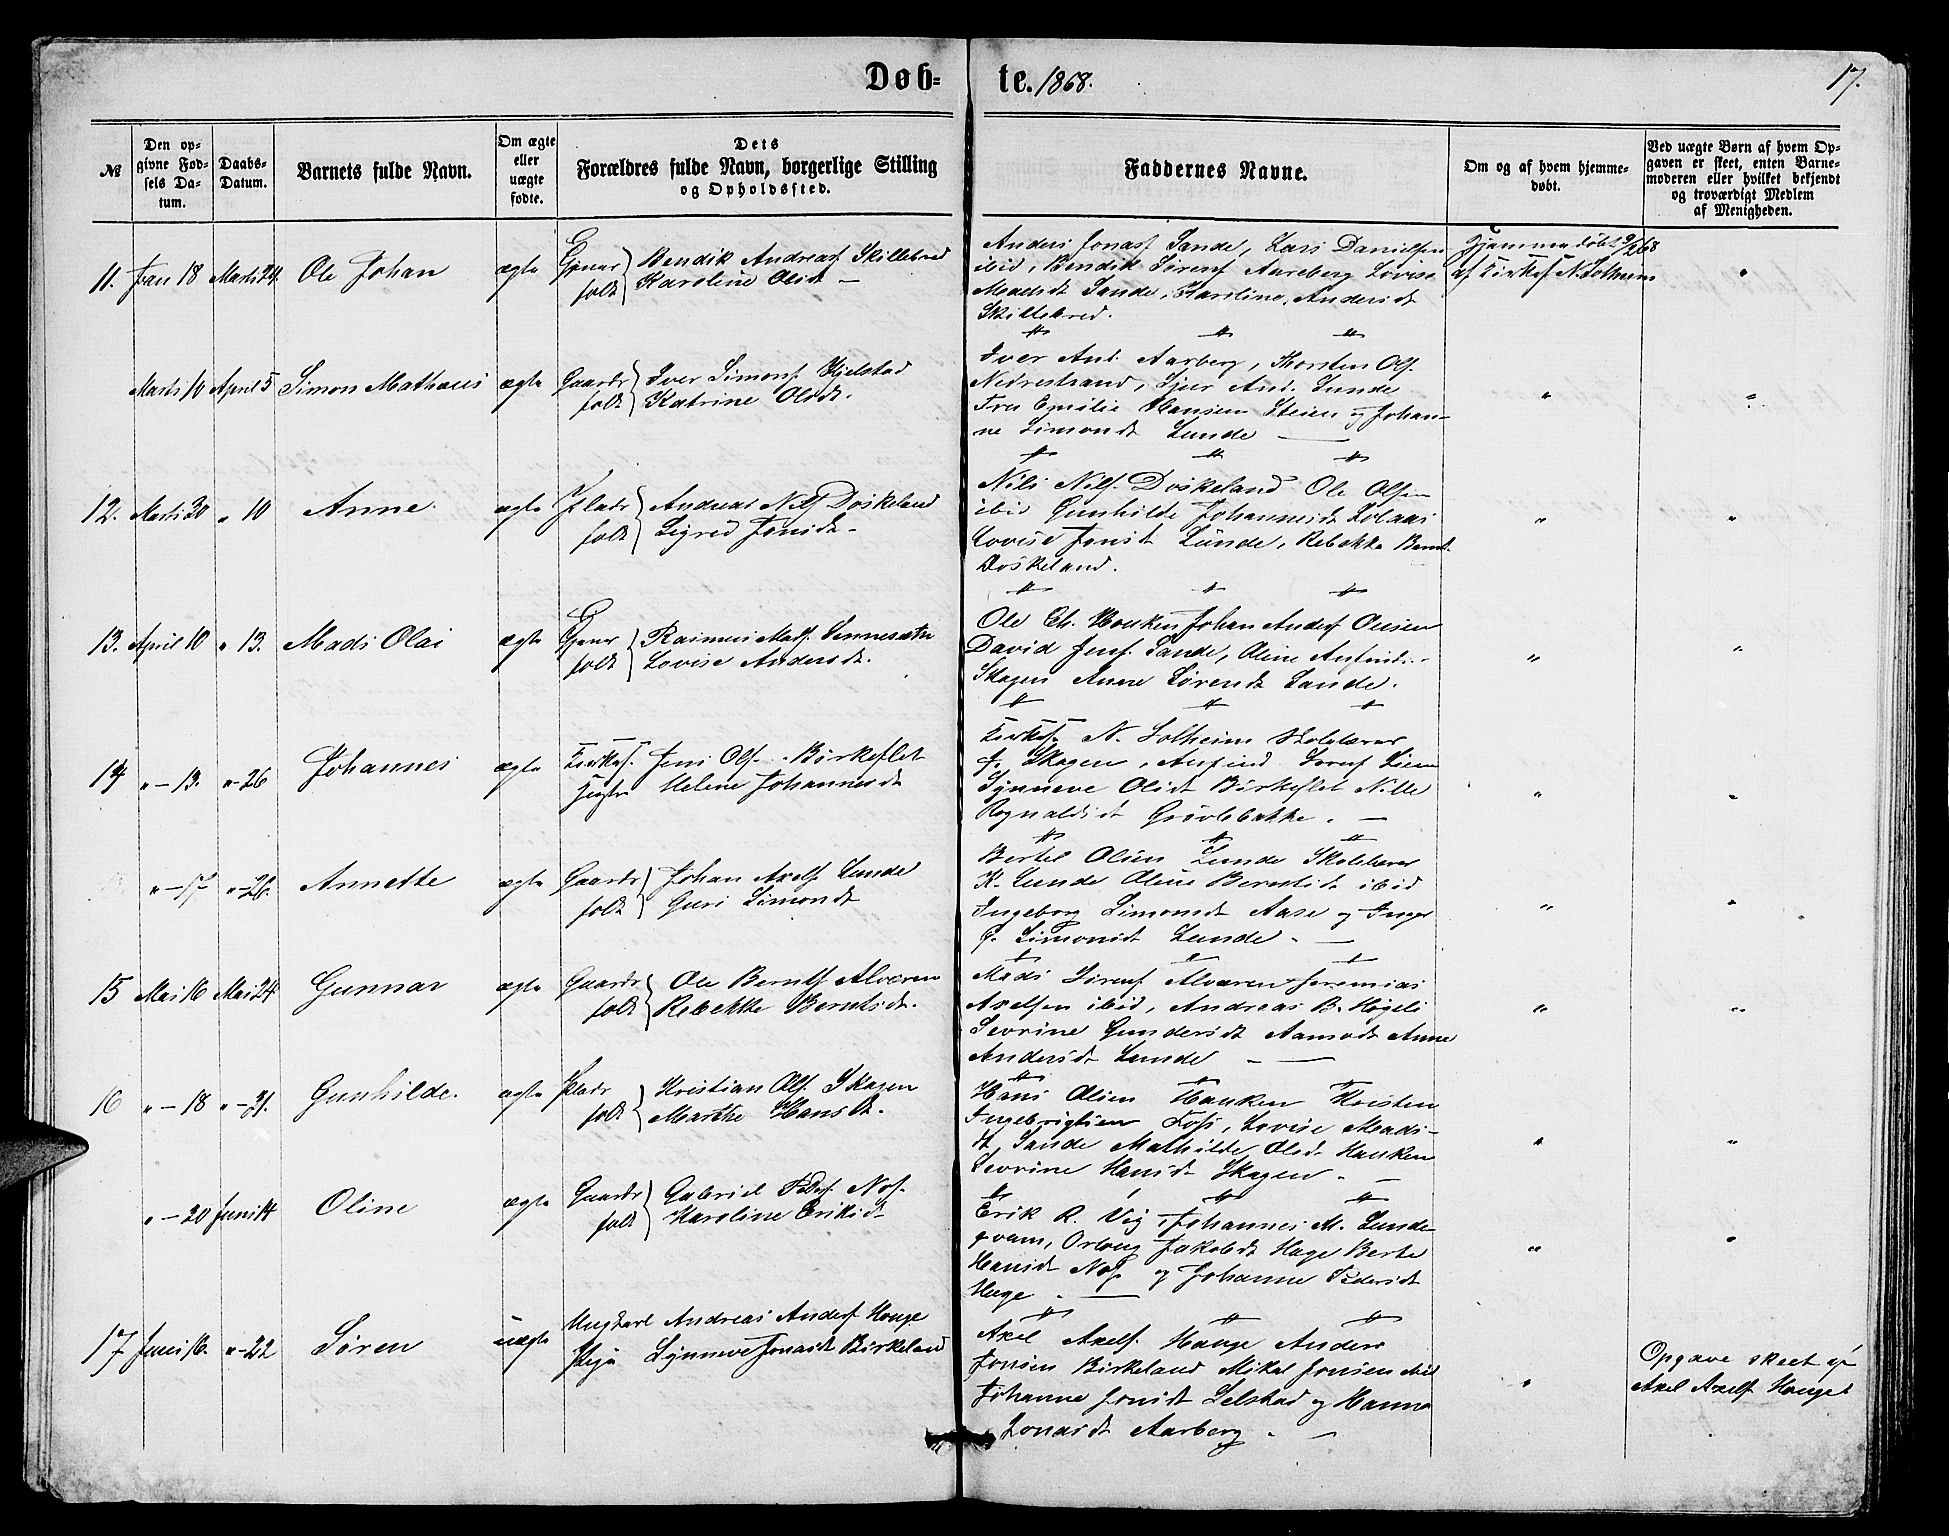 Døb= te. 1868. 17.
№
Den op-
givne Fød-
sels Da-
tum.
Daabs-
Datum.
Barnets fulde Navn.
Om ægte
eller
uægte
fødte.
Dets
Forældres fulde Navn, borgerlige Stilling
og Opholdssted.
Faddernes Navne.
Om og af hvem hjemme-
døbt.
Ved uægte Børn af hvem Op-
gaven er skeet, enten Barne-
moderen eller hvilket bekjendt
og troværdigt Medlem
af Menigheden.
11. Jan 18 Marts 24. Ole Johan ægte
folk Bendik Andreasf Skillebred
Karoline Olsdt
Anders Jonasf Sande, Lars Danielsen
ibid, Bendik Sørensf Aareberg Lovise
Madsdt Sande, Karoline Andersdt
Skillebred.
Hjemmedøbt 9/2 68
af Kirkes. N. Solheim
Marts 10 April 5 Simon Mathæus ægte Gaardr
folk Iver Simonsf Hjelstad
Katrine Olsdt.
Iver And. Aarberg, Thorsten Olsf.
Nedrestrand, Sjur And. Lunde
Fru Emilie Hansen Steien og Johan-
ne Simonsdt Lunde
12. Marts 20 " 10 Anne. ægte Pladr
folk Andreas Nilsf Døskeland
Sigrid Jonsdt
Nils Nilsf. Døskeland Ole Olsen
ibid Gunhilde Johannesdt
Lovise Jensdt Lunde, Rebekka Bernt.
Døskeland.
13. April 10 " 13. Mads Olai ægte
folk Rasmus Madsf.
Lovise Andersdt.
Ole Johan Andersf
David Jensf. Sande, Oline
Skagen Anne Sørensdt Sande.
14 " - 13. " - 26 Johannes ægte Kirkes. Jens Olsf. Birkeflet
Helene Johannesdt
N. Solheim Skolelærer
Skagen, Anfind
Synneve Olsdt Birkeflet Nille
Rognaldsdt Grøvlebakke.
" - 17 " - 26. Annette ægte Gaardr
folk Johan Axelsf Lunde
Guri Simonsdt
Bertel Olsen Lunde Skolelærer
K. Lunde Oline Berntsdt ibid
Ingeborg Simonsdt Aase og Inger
Simonsdt Lunde.
15 Mai 16 Mai 24 Gunnar ægte Gaardr
folk Ole Berntsf Alværen
Rebekka Berntsdt.
Mads Sørensf Alværen Jeremias
Axelsen ibid, Andreas B. Høgeli
Sevrine Gundersdt Aamodt Anne
Andersdt Lunde
16 " - 18 " - 31. Gunhilde. ægte Pladr
folk Kristian Olsf. Skagen
Marthe Hansdt.
Hans Olsen Hauken Kristen
Ingebrigtsen Foss, Lovise Mads-
dt Sande Mathilde Olsdt Hauken
Sevrine Hansdt Skagen.
" - 20 Juni 14 Oline ægte Gaardr
folk Gabriel Pedersf. Nos.
Karoline Eriksdt
Erik R. Vig, Johannes M. Lunde-
qvam, Jakobsdt Hage Berte
Hansdt Nos. og Johanne Pedersdt
Hage.
17 Juni 16. " - 22 Søren uægte Ungkarl Andreas Andersf Houge
Pige Synneve Jonasdt Birkeland
Axel Axelsf. Hauge Anders
Jonsen Birkeland Mikal Jonsen ibid
Johanne Jonsdt Selstad og Hanna
Jonasdt Aarberg.
Opgave skeet af
Axel Axelsf Houge